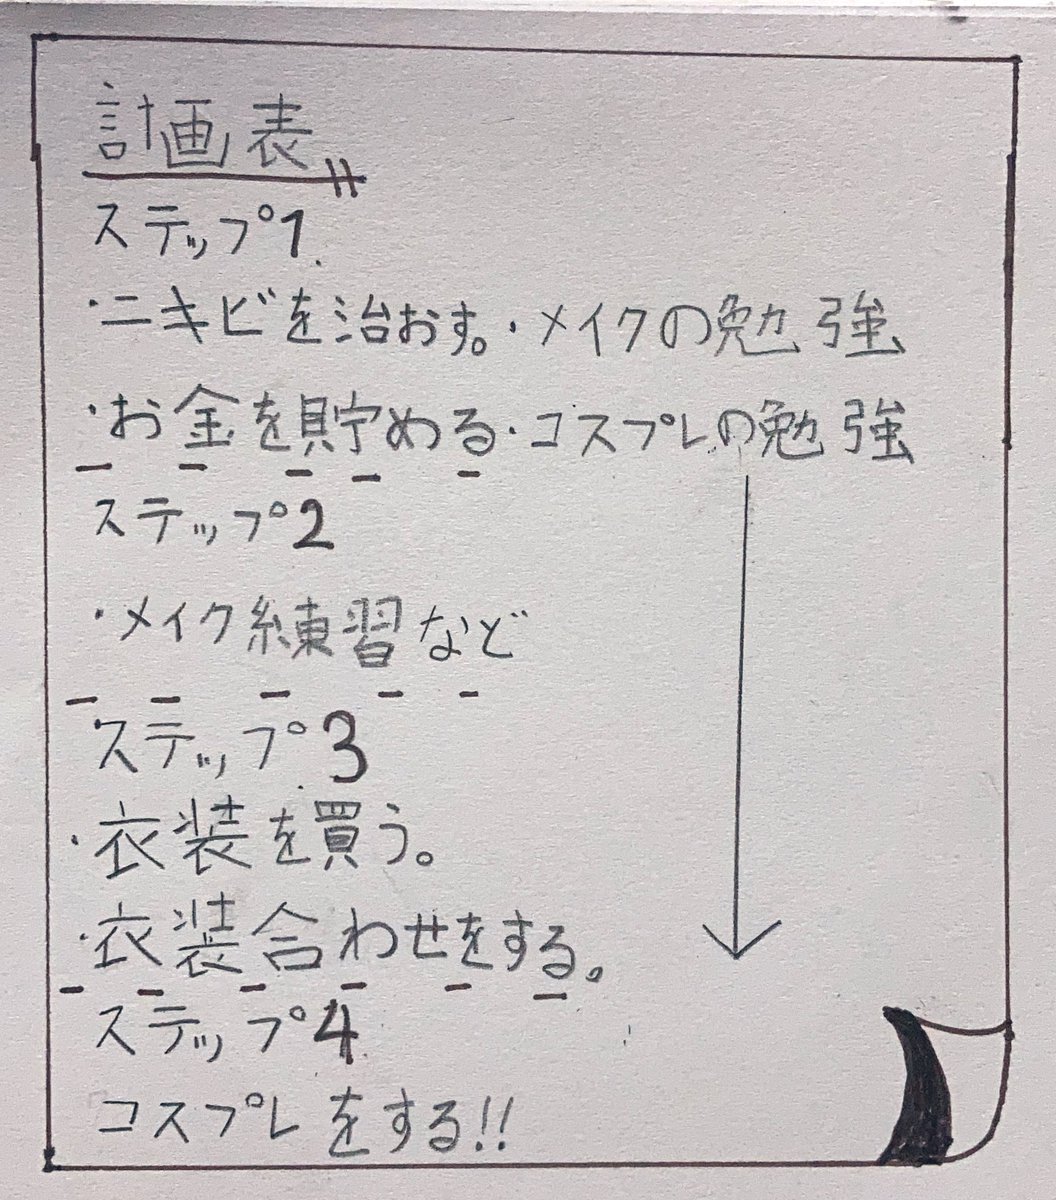 計画表
ステップ1.
・ニキビを治おす。・メイクの勉強
・お金を貯める・コスプレの勉強
ステップ2
・メイク練習など
ステップ3
・衣装を買う。
・衣装合わせをする。
ステップ4
コスプレをする!!